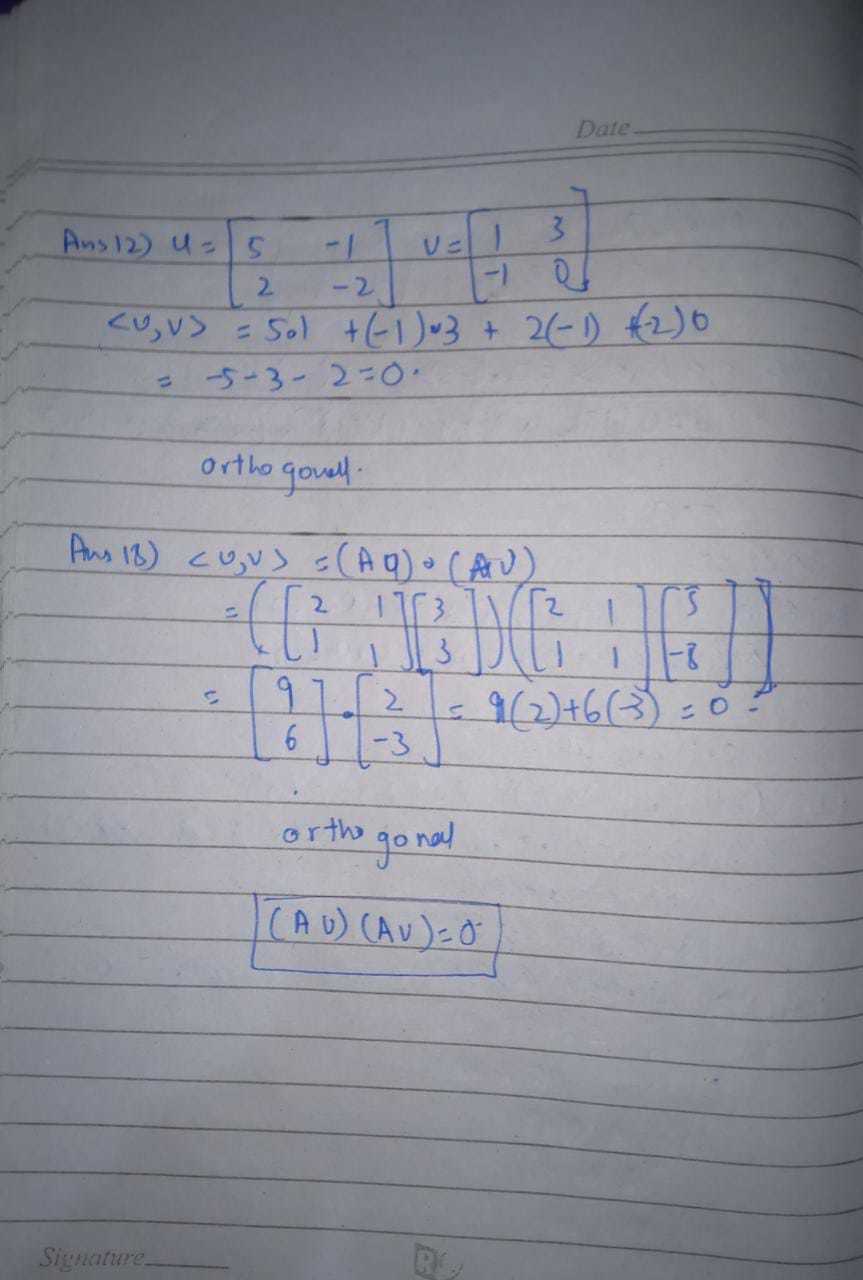 Date
Ans 12) U = [5 -1] V = [1 3]
[2 -2] [-1 0]
<U,V> = 5.1 + (-1).3 + 2(-1) + (-2)0
= -5-3-2=0.
orthogonall.
Ans 18) <U,V> = (AU) . (AV)
= ([2 1][3])([2 1][5])
[1 1][3] [1 1][-8]
= [9] . [2] = 9(2)+6(-3) = 0
[6] [-3]
orthogonal
(AU) (AV)=0
Signature